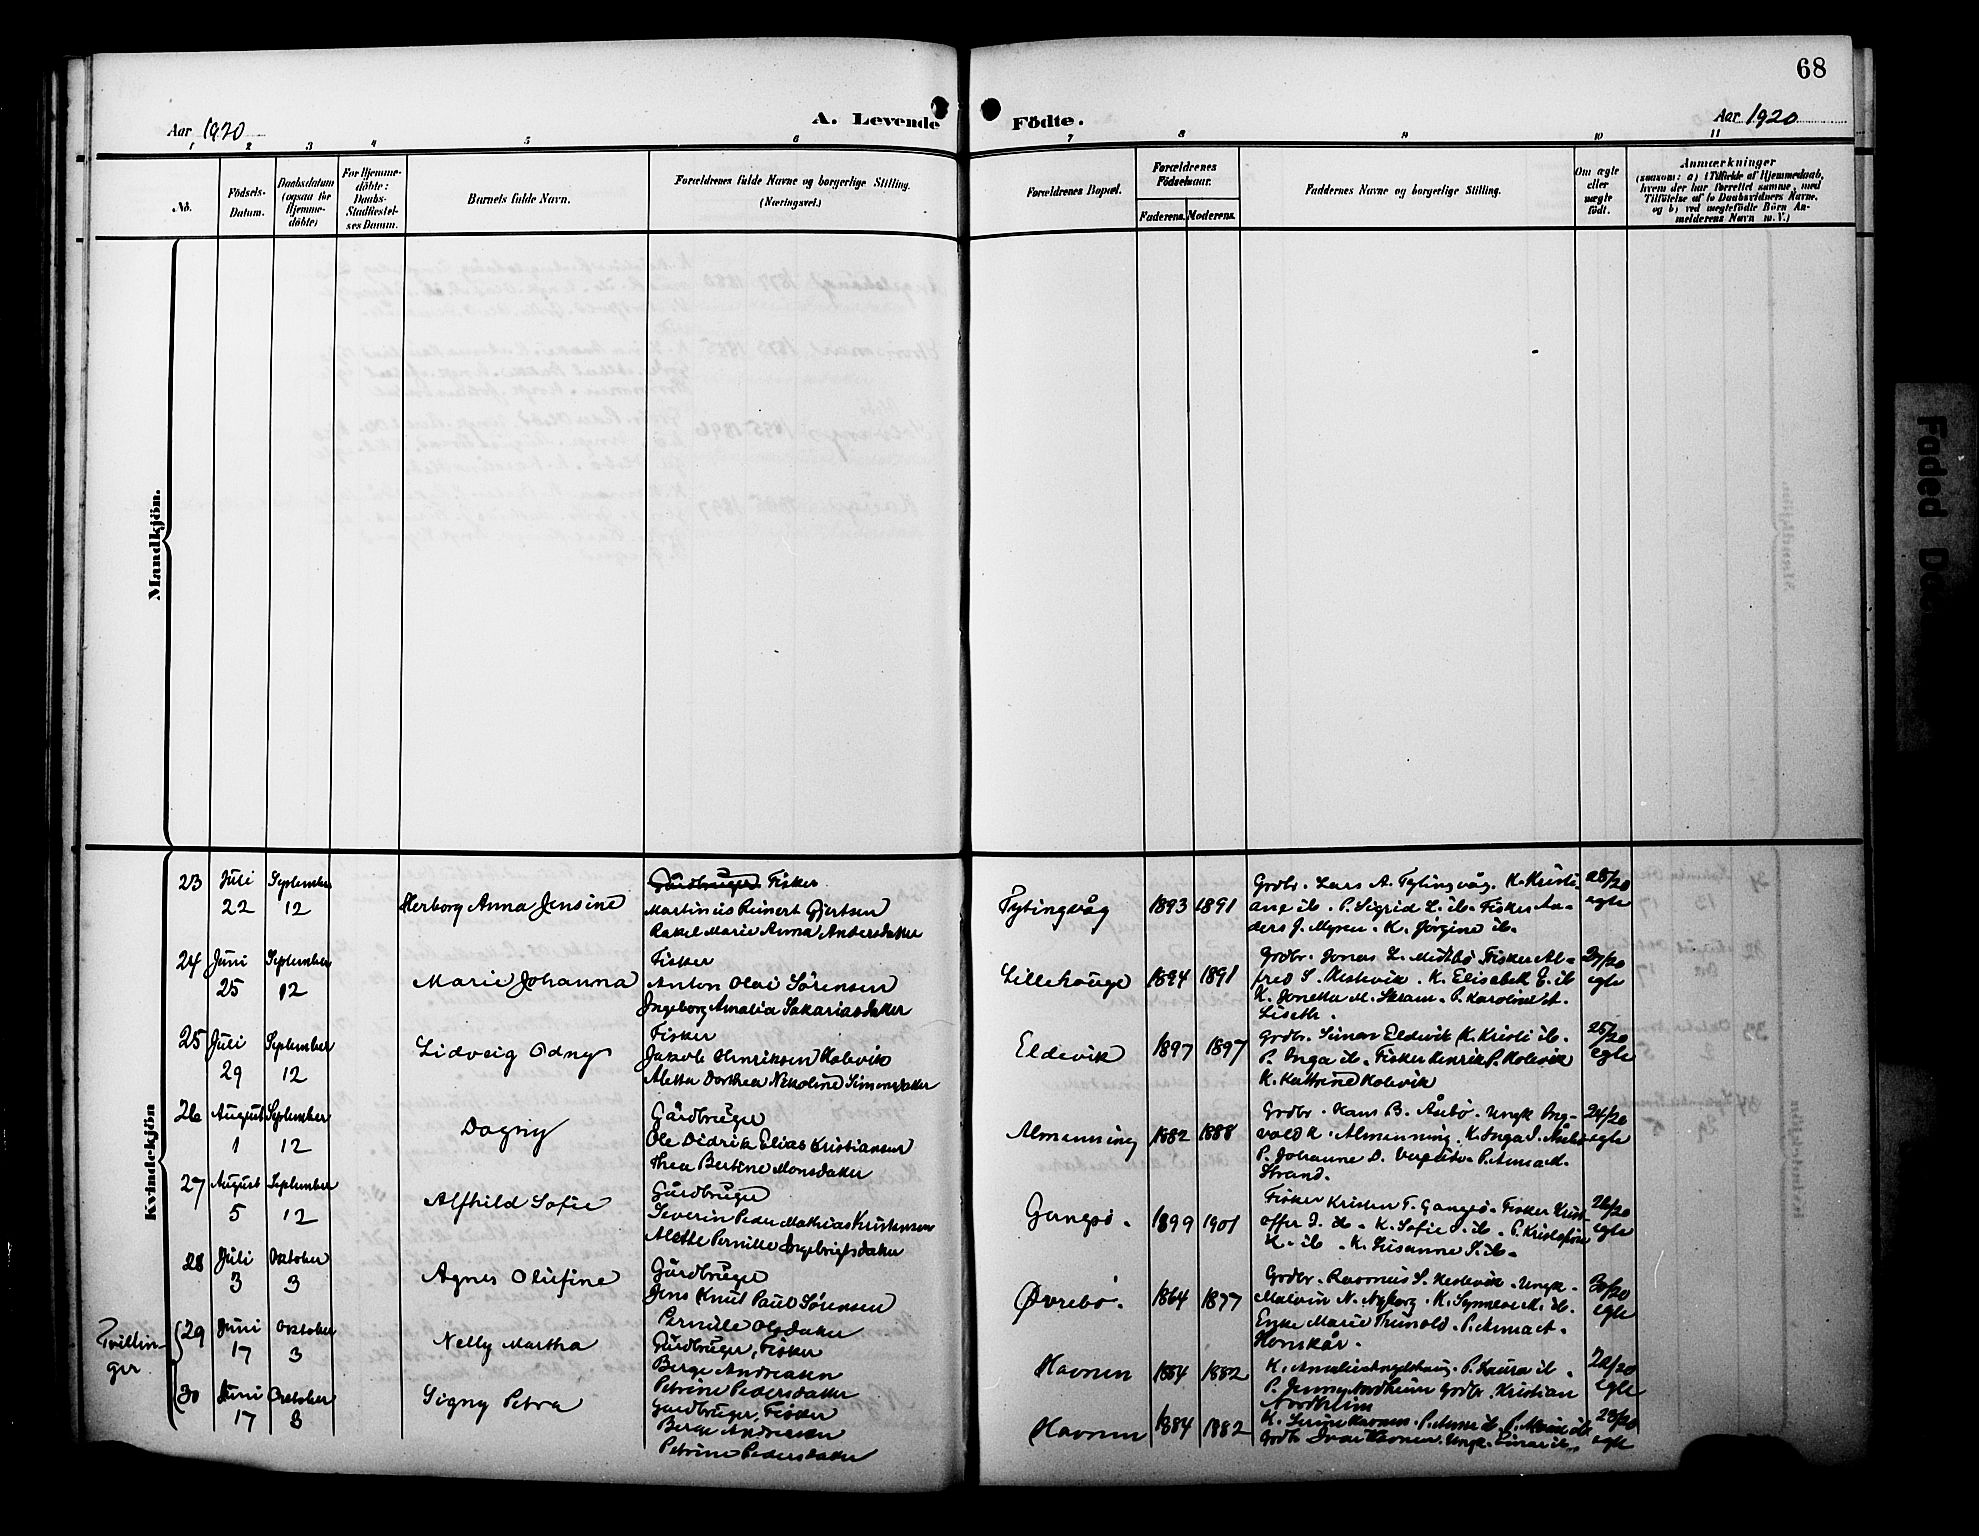 68
Aar 1920
A. Levende Födte.
Aar 1920
1 2 3 4 5 6 7 8 9 10 11
No.
Födsels-
Datum.
Daabsdatum
(ogsaa for
Hjemme-
döbte)
For Hjemme-
döbte:
Daabs-
Stadfæstel-
ses Datum.
Barnets fulde Navn.
Forældrenes fulde Navne og borgerlige Stilling.
(Næringsvei.)
Forældrenes Bopæl.
Forældrenes
Födselsaar.
Faderens. Moderens.
Faddernes Navne og borgerlige Stilling.
Om ægte
eller
uægte
født.
Anmærkninger
(saasom: a) i Tilfælde af Hjemmedaab,
hvem der har forrettet samme, med
Tilføielse af to Daabsvidners Navne.
og b) ved uægtefödte Börn An-
melderens Navn m. V.)
Mandkjön.
Kvindekjön
23 Juli 22 September 12
Herborg Anna Jensine
Gårdbruger Fisker
Martinus Reinert Gjertsen
Rakel Marie Anna Andersdatter
Tytingvåg 1893 1891
Grdbr. Lars A. Tytingvåg. K. Kristi-
ane ib. P. Sigrid L. ib. Fisker An-
ders J. Myren. K. Jørgine ib.
28/20
egte
24 Juni 25 September 12
Marie Johanna
Fisker
Anton Olai Sørensen
Ingeborg Amalia Sakariasdatter
Lillehauge 1894 1891
Grdbr. Jonas L. Midtbø Fisker Al-
fred S. Hestevik. K. Elisabet E. ib
K. Jonetta M. Skram. P. Karoline A.
Liseth.
27/20
egte
25 Juli 29 September 12
Lidveig Odny
Fisker
Jakob Henriksen Holevik
Aletta Dorthea Nikoline Simonsdatter
Eldevik 1897 1897
Grdbr. Simon Eldevik K. Kristi ib.
P. Inga ib. Fisker Henrik P. Holevik
K. Kattrine Holevik
25/20
egte
26 August 1 September 12
Dagny
Gårdbruger
Ole Didrik Elias Kristiansen
Thea Bertine Monsdatter
Almenning 1882 1888
Grdbr. Hans B. Åsebø. Ungk. Ing-
vald K. Almenning. K. Inga J. Åsebø
P. Johanne D.
Strand.
24/20
egte
27 August 5 September 12
Alfhild Sofie
Gårdbruger
Severin Peder Mathias Kristensen
Alette Pernille Ingebrigtsdatter
Gangsø. 1899 1901
Fisker Kristen T. Gangsø. Fisker Krist-
offer I. ib. K. Sofie I. ib. P. Kristofine
K. ib. K. Susanne S. ib.
26/20
egte
28 Juli 3 Oktober 3
Agnes Olufine
Gårdbruger
Jens Knut Paul Sørensen
Pernille Olsdatter
Øvrebø. 1864 1877
Grdbr. Rasmus S. Hestevik. Ungk.
Malvin N. Nyborg. K. Synneve M. ib.
Enke Marie Trunold. P. Anna A.
Hovskår.
30/20
egte
Tvillin-
ger
29 Juni 17 Oktober 3
Nelly Martha
Gårdbruger, Fisker
Berge Andreasen
Petrine Pedersdatter
Havnen 1884 1882
K. Amalie Angelshaug. P. Laura ib.
P. Jenny Nordheim Grdbr. Kristian
Nordheim
22/20
egte
30 Juni 17 October 3
Signy Petra
Gårdbruger, Fisker
Berge Andreasen
Petrine Pedersdatter
Havnen 1884 1882
K. Serine Havnen. P. Anne ib. P. Marie ib
Grdbr Ivar Havnen. Ungk. Einar ib.
23/20
egte
Faded Do